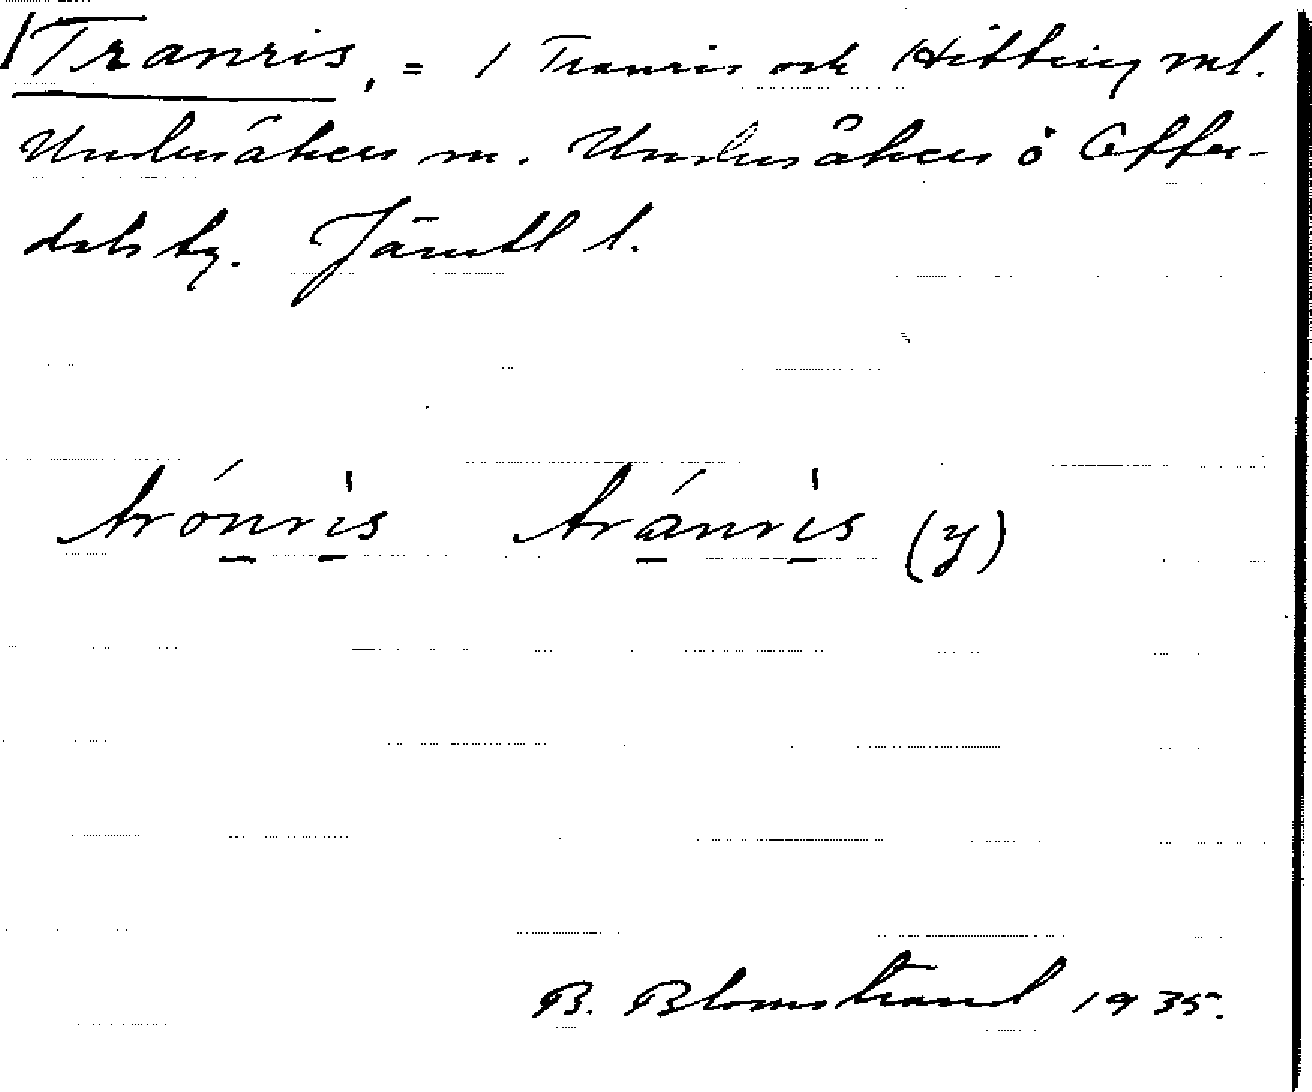 /Tranris, = / Tranris och Hibbing ml.
Undersåkers m. Undersåkers o Offer-
dals tg. Jämtl l.
trónrìs tránrìs (y)
B. Blomstrand 1935.